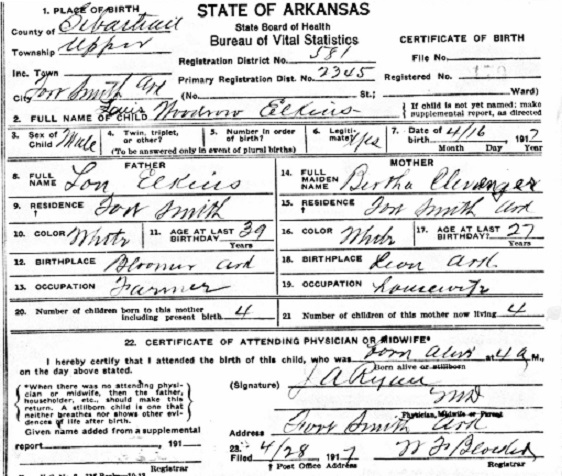 1. PLACE OF BIRTH
STATE OF ARKANSAS
County of Sebastian
State Board of Health
Township Upper
Bureau of Vital Statistics
CERTIFICATE OF BIRTH
Registration District No. 581
File No.
Inc. Town
Primary Registration Dist. No. 2345
Registered No.
City Fort Smith Ark
(No. St.; Ward)
Louis
2. FULL NAME OF CHILD Woodrow Elkins
{ If child is not yet named; make supplemental report, as directed
3. Sex of Child Male
4. Twin, triplet, or other?
5. Number in order of birth?
(To be answered only in event of plural births)
6. Legitimate? Yes
7. Date of birth 4/16 1917
Month Day Year
FATHER
8. FULL NAME Lon Elkins
MOTHER
14. FULL MAIDEN NAME Bertha Clevenger
9. RESIDENCE Fort Smith
15. RESIDENCE Fort Smith Ark
10. COLOR White
11. AGE AT LAST BIRTHDAY? 39 Years
16. COLOR White
17. AGE AT LAST BIRTHDAY? 27 Years
12. BIRTHPLACE Bloomer Ark
18. BIRTHPLACE Ark
13. OCCUPATION Farmer
19. OCCUPATION housewife
20. Number of children born to this mother including present birth 4
21 Number of children of this mother now living 4
22. CERTIFICATE OF ATTENDING PHYSICIAN OR MIDWIFE*
I hereby certify that I attended the birth of this child, who was born alive at 4 a M.,
Born alive or stillborn
on the day above stated.
{ *When there was no attending physician or midwife, then the father, householder, etc., should make this return. A stillborn child is one that neither breathes nor shows other evidences of life after birth. }
(Signature) J A
MD
Physician, Midwife or Parent
Given name added from a supplemental
report 191
Address Fort Smith Ark
23. Filed 4/28 1917
Registrar
† Post Office Address
Registrar